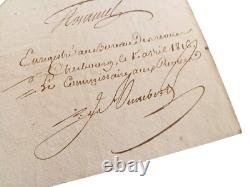 Rosamel
Enregistré au bureau des revues
Cherbourg, le 1er avril 1818
Le Commissaire aux Revues